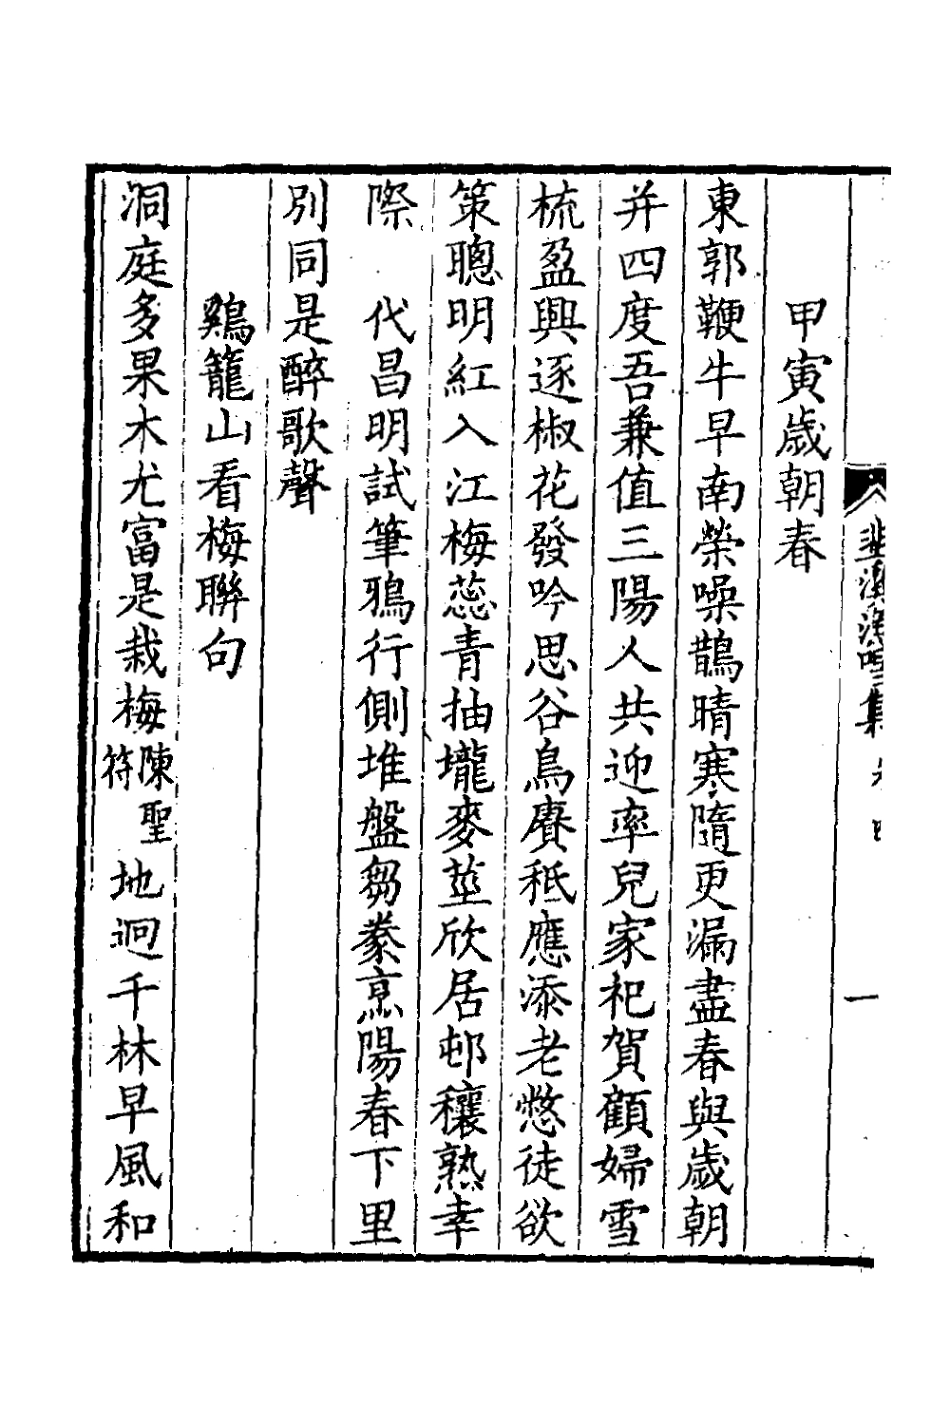 甲寅歲朝春
東郭鞭牛早南榮噪鵲晴寒隨更漏盡春與歲朝
并四度吾兼值三陽人共迎率兒家祀賀顧婦雪
梳盈興逐椒花發吟思谷鳥賡秪應添老憋徒欲
策聰明紅入江梅蕊青抽壠麥莖欣居邨穰熟幸
際　代昌明試筆鴉行側堆盤芻豢烹陽春下里
別同是醉歌聲
鷄籠山看梅聯句
洞庭多果木尤富是栽梅陳聖符地迥千林早風和